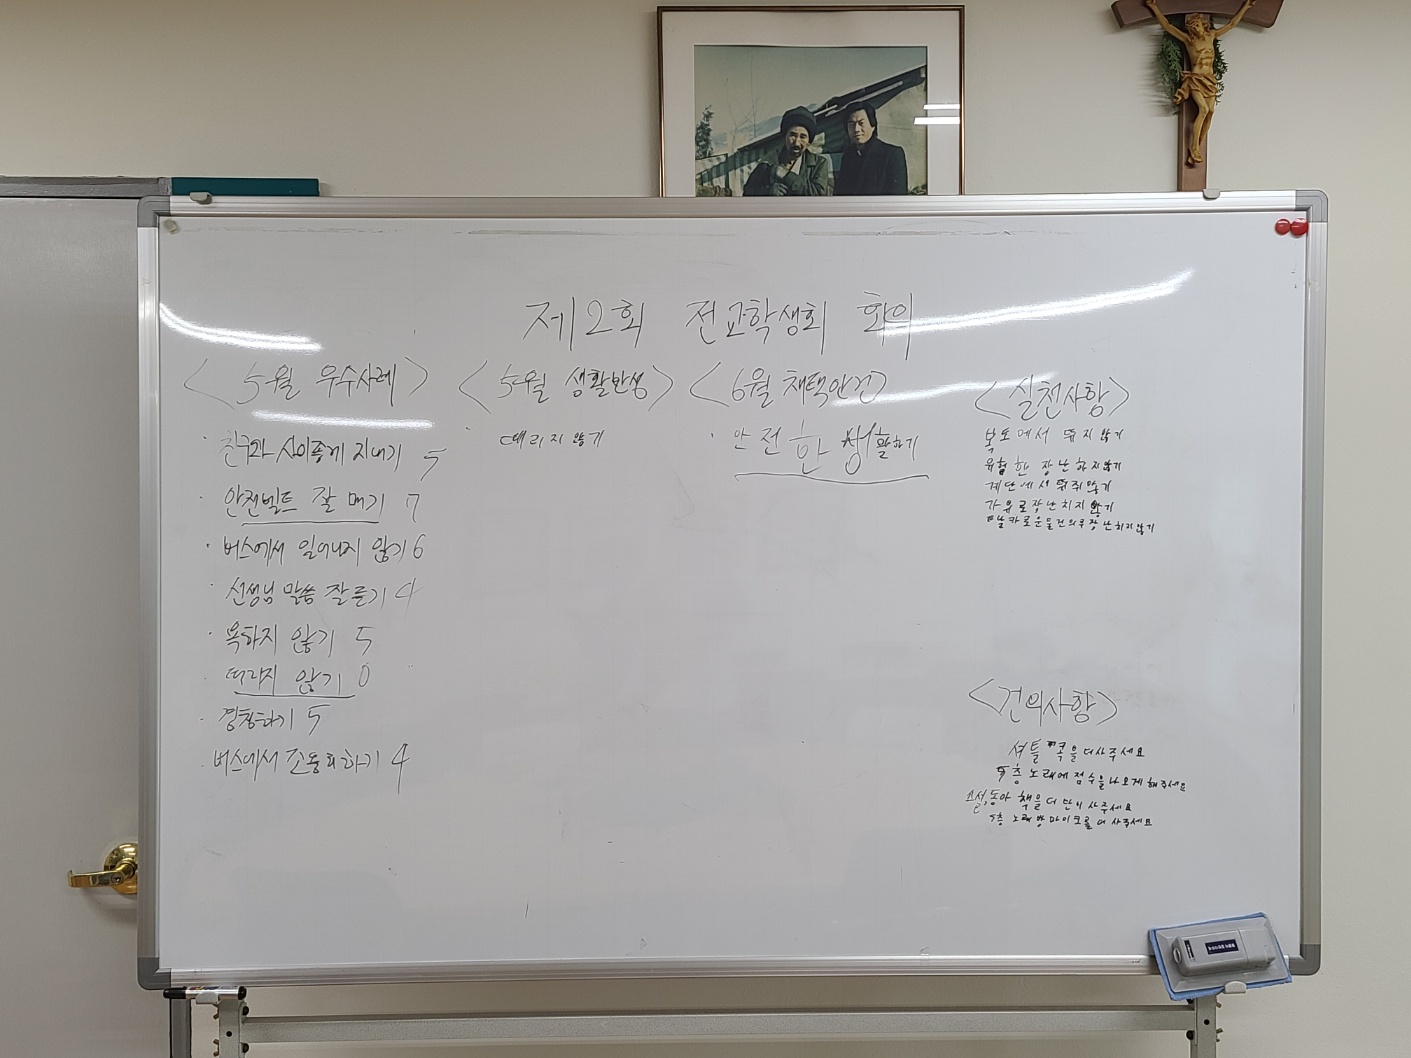 제2회 전교학생회 회의
<5월 우수사례>
· 친구와 사이좋게 지내기 5
· 안전벨트 잘 매기 7
· 버스에서 일어나지 않기 6
· 선생님 말씀 잘 듣기 4
· 욕하지 않기 5
· 때리지 않기 0
· 경청하기 5
· 버스에서 조용히하기 4
<5월 생활반성>
· 때리지 않기
<6월 채택안건>
· 안전한 생활하기
<실천사항>
복도에서 뛰지 않기
위험한 장난하지않기
계단에서 뛰지않기
가위로장난치지 않기
날카로운물건으로장난치지않기
<건의사항>
셔틀콕을 더사주세요
5층 노래에점수를나오게해주세요
소설,동아 책을 더 많이 사주세요
5층 노래방마이크를 더 사주세요